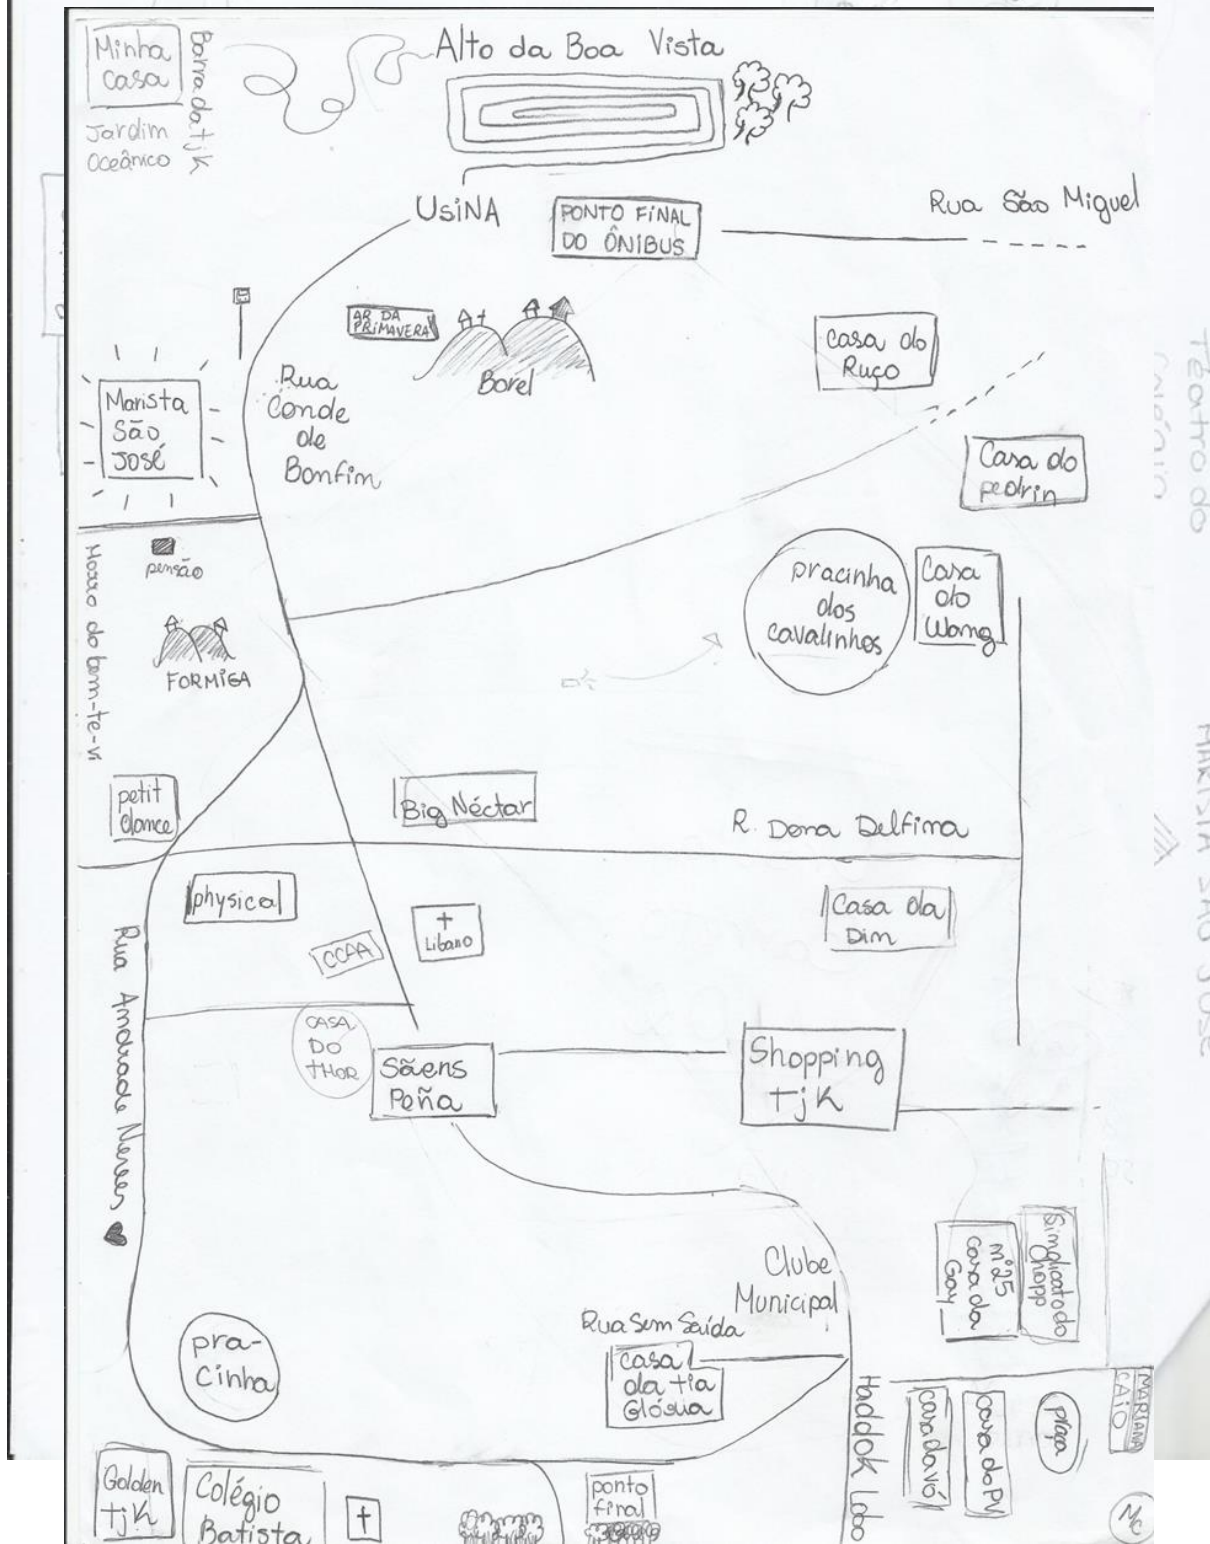 Minha
casa
Barra da tjk
Jardim
Oceânico
Alto da Boa Vista
USINA
PONTO FINAL
DO ÔNIBUS
Rua São Miguel
AR DA
PRIMAVERA
Borel
Casa do
Ruço
Rua
Conde
de
Bonfim
Marista
São
José
Casa do
pedrin
pensão
Morro do bem-te-vi
FORMIGA
pracinha
dos
cavalinhos
Casa
do
Wang
petit
dance
Big Néctar
R. Dona Delfina
physical
CCAA
Líbano
Casa da
Dim
Rua Andrade Neves
CASA
DO
tHOR
Sãens
Peña
Shopping
tjk
Clube
Municipal
Rua Sem Saída
casa
da tia
Glória
nº25
casa da
Gay
Sindicato do
Chopp
pra-
cinha
Haddok Lobo
casa da vó
casa do PV
praça
MARIANA
CAIO
Golden
tjk
Colégio
Batista
ponto
final
Mc
Teatro do
MARISTA SÃO JOSÉ